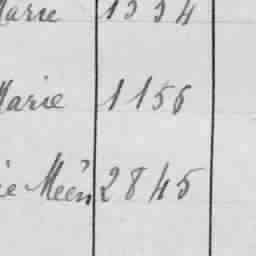 Marie 1334
Marie 1156
ie Méén 2845